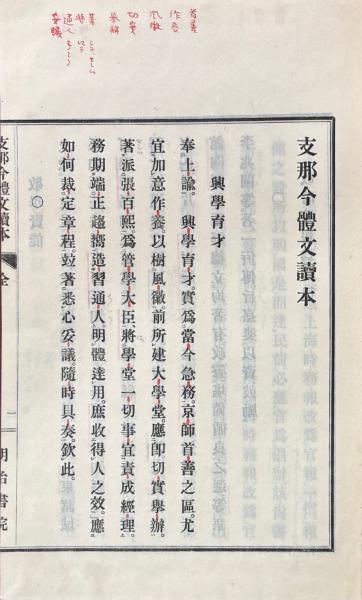 支那今體文讀本
興學育才
奉上諭。興學育才。實爲當今急務。京師首善之區。尤
宜加意作養。以樹風徽。前所建大學堂。應卽切實舉辦。
著派張百熙。爲管學大臣。將學堂一切事宜。責成經理。
務期端正趨嚮。造習通人。明體達用。庶收得人之效。應
如何裁定章程。竝著悉心妥議。隨時具奏。欽此。
支那今體文讀本
全
一
明治書院
首善
作養
風徽
切實